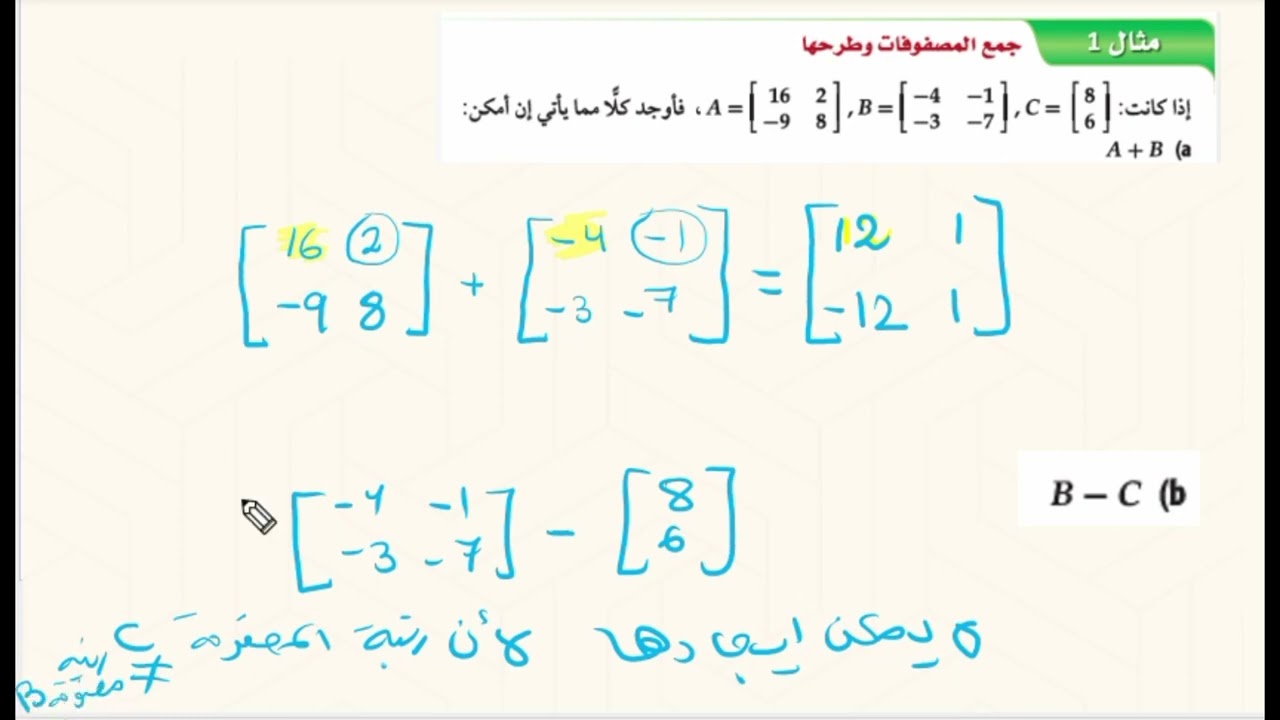 مثال 1 جمع المصفوفات وطرحها
إذا كانت: A = [16 2; −9 8], B = [−4 −1; −3 −7], C = [8; 6] ، فأوجد كلًّا مما يأتي إن أمكن:
A + B (a
[16 2] + [-4 -1] = [12 1]
[-9 8] [-3 -7] [-12 1]
B − C (b
[-4 -1] - [8]
[-3 -7] [6]
لا يمكن ايجادها لأن رتبة المصفوفة C ≠ رتبة مصفوفة B